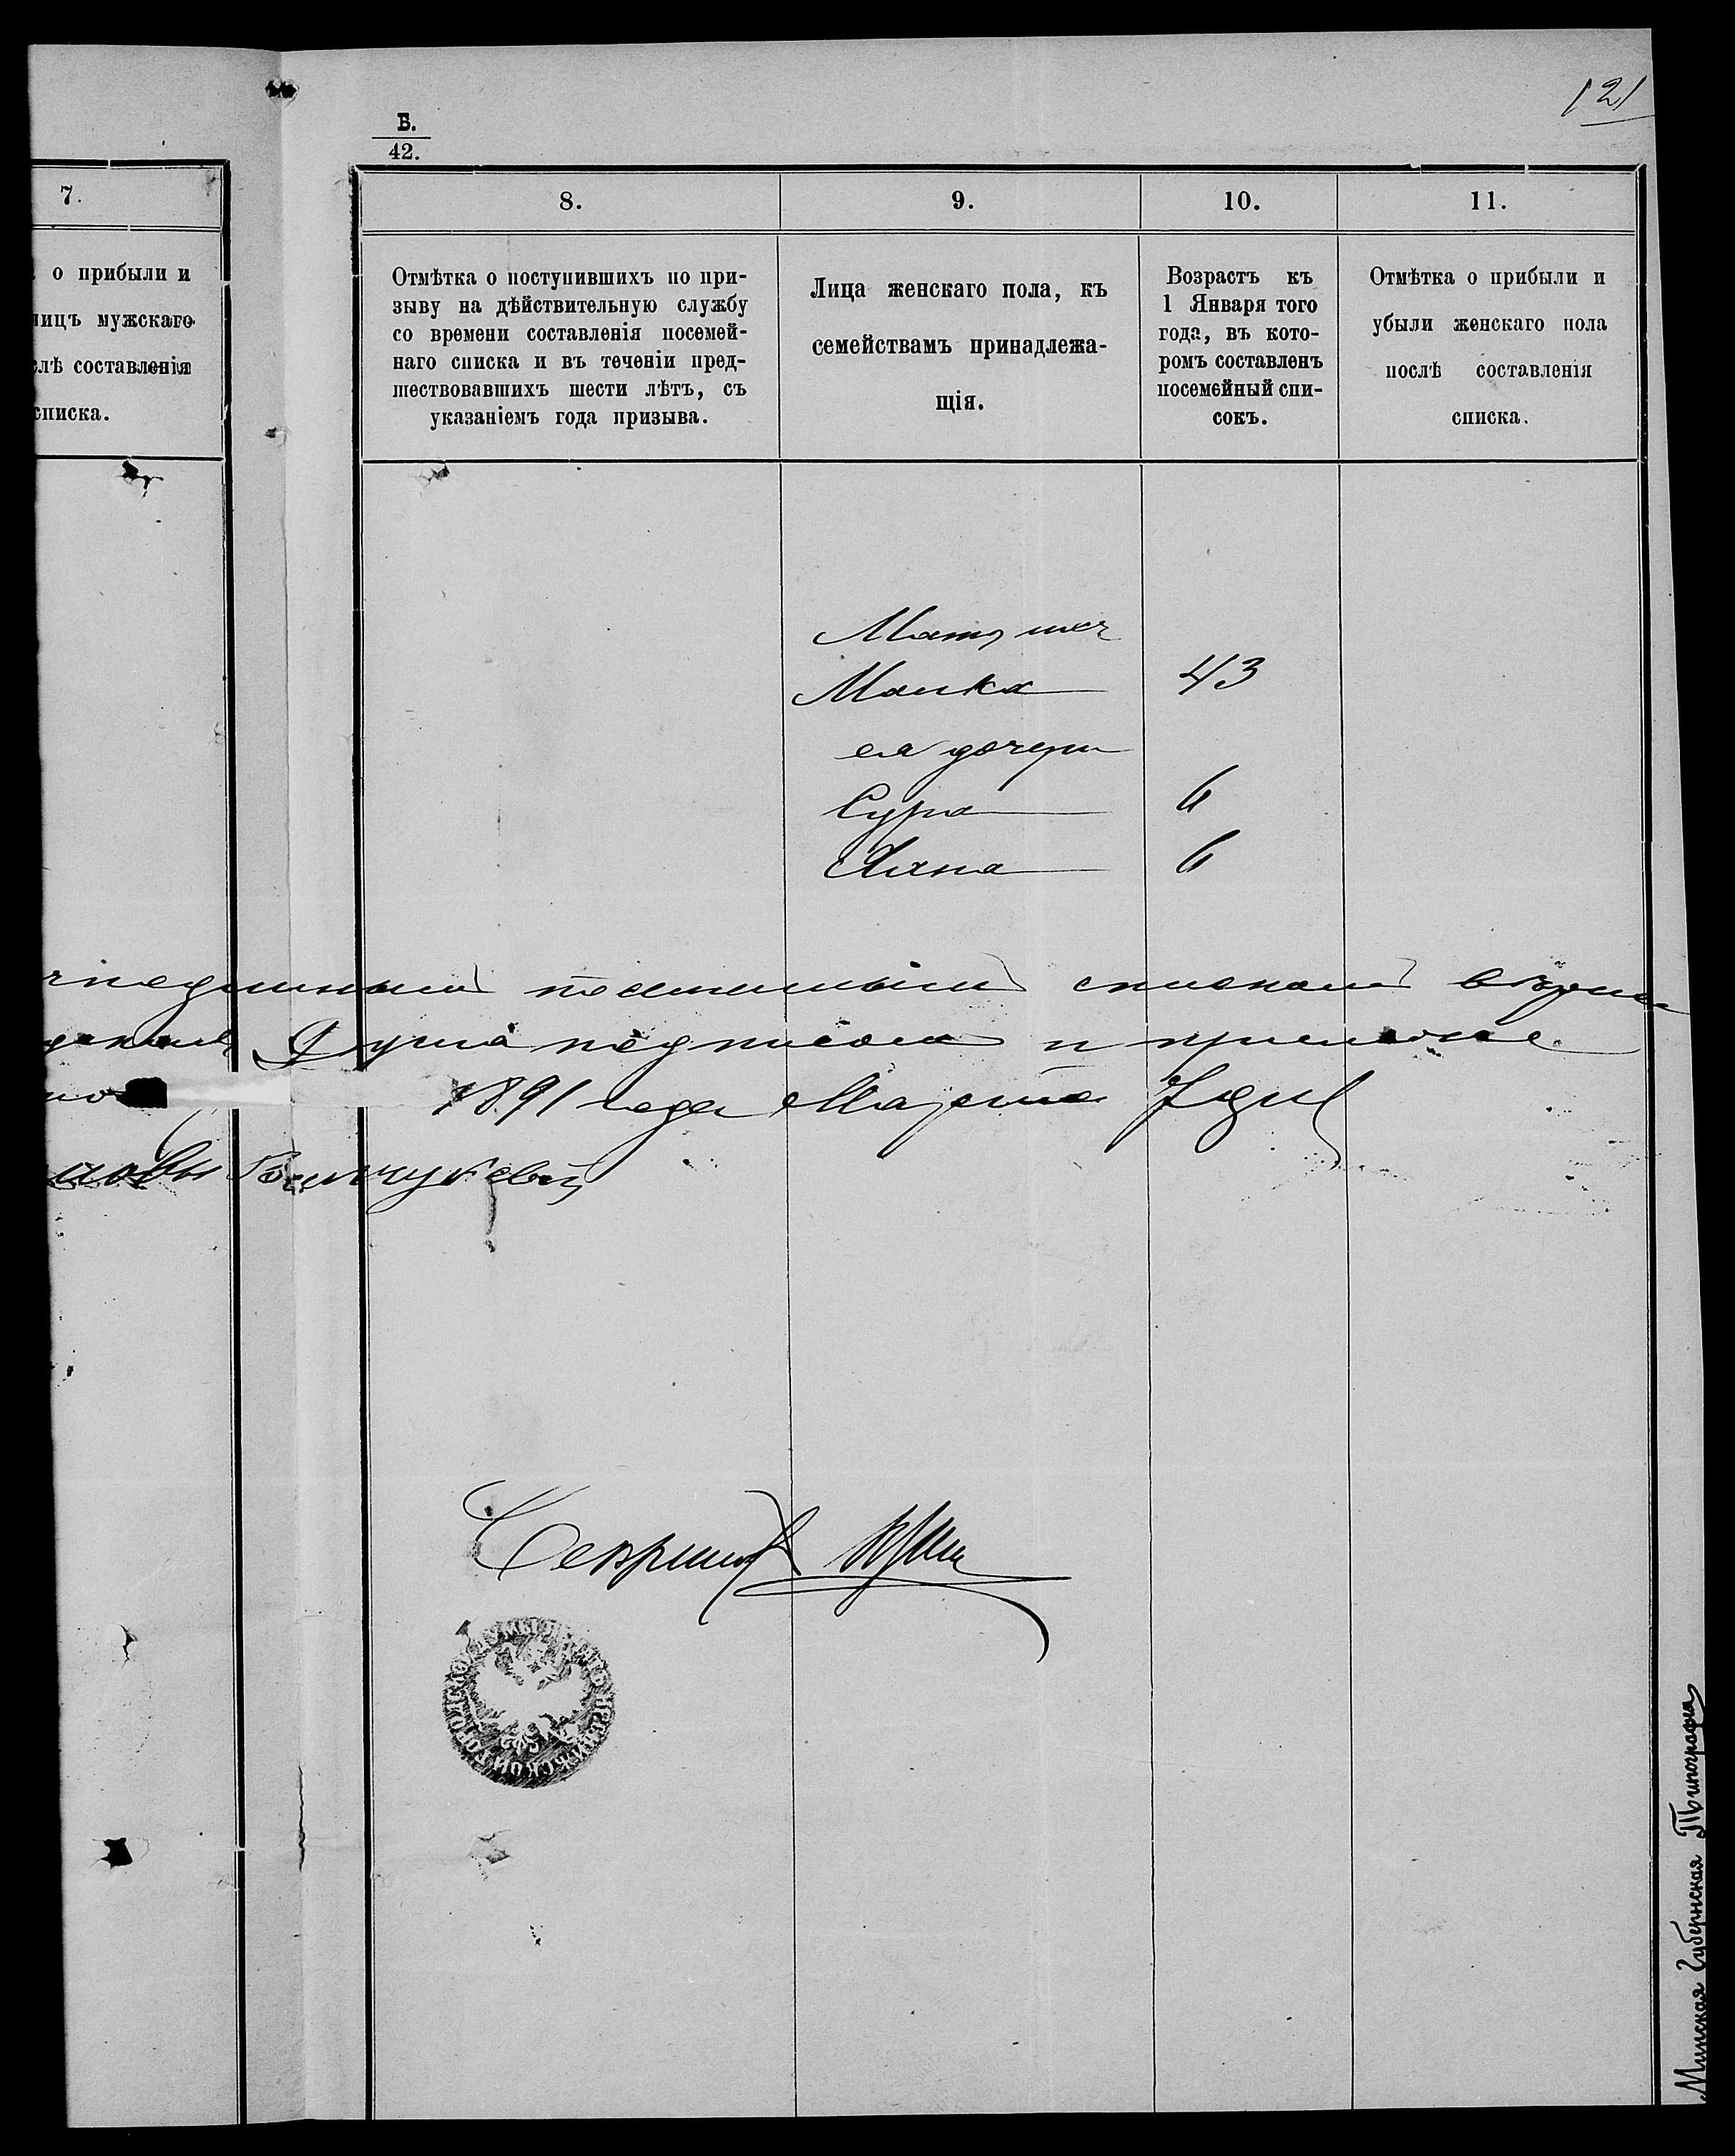 121
Б.
42.
7.
о прибыли и
лицъ мужскаго
слѣ составленія
списка.
8.
Отмѣтка о поступившихъ по при-
зыву на дѣйствительную службу
со времени составленія посемей-
наго списка и въ теченіи пред-
шествовавшихъ шести лѣтъ, съ
указаніемъ года призыва.
9.
Лица женскаго пола, къ
семействамъ принадлежа-
щія.
10.
Возрастъ къ
1 Января того
года, въ кото-
ромъ составленъ
посемейный спи-
сокъ.
11.
Отмѣтка о прибыли и
убыли женскаго пола
послѣ составленія
списка.
Мать ихъ
Малка 43
ея дочери
Сура 6
Хана 6
подлиннымъ посемейнымъ спискомъ
Дума подписомъ и приложе
1891 года Марта
Секретарь
Минская Губернская Типографія